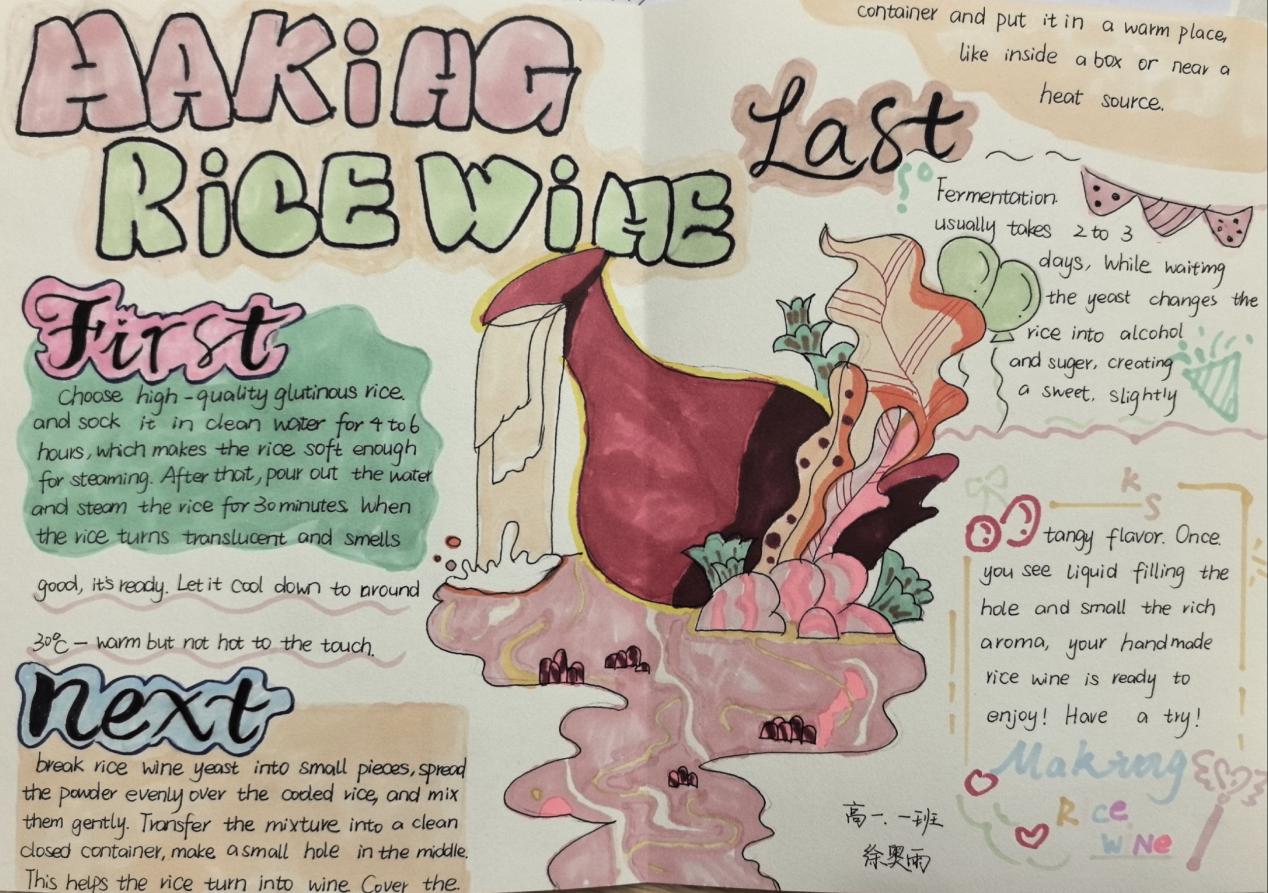 MAKiNG
RiCE WiNE
First
choose high-quality glutinous rice.
and sock it in clean water for 4 to 6
hours, which makes the rice soft enough
for steaming. After that, pour out the water
and steam the rice for 30 minutes. When
the rice turns translucent and smells
good, it's ready. Let it cool down to around
30℃ — warm but not hot to the touch.
next
break rice wine yeast into small pieces, spread
the powder evenly over the cooled rice, and mix
them gently. Transfer the mixture into a clean
closed container, make a small hole in the middle.
This helps the rice turn into wine. Cover the.
container and put it in a warm place,
like inside a box or near a
heat source.
Last
Fermentation.
usually takes 2 to 3
days, While waiting
the yeast changes the
rice into alcohol
and suger, creating
a sweet, slightly
KS
tangy flavor. Once.
you see liquid filling the
hole and small the rich
aroma, your handmade
rice wine is ready to
enjoy! Have a try!
Making
Rice
wiNe
高一.一班
徐奥雨